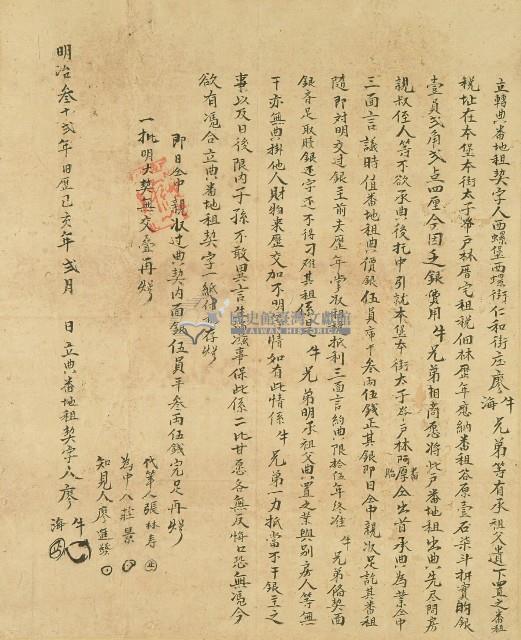 立轉典番地租契字人西螺堡西螺街仁和街庄廖牛海兄弟等有承祖父遺下置之番租
稅址在本堡本街太子爺戶林厝宅租稅佃林歷年應納番租谷原壹石柒斗折實的銀
壹員弍角弍点四厘今因乏銀費用牛海兄弟相商愿將此戶番地租出典先尽問房
親叔侄人等不欲承典後托中引就本堡本街太子爺戶林阿厚番臨仝出首承典為業仝中
三面言議時值番地租典價銀伍員庫平叁兩伍錢正其銀即日仝中親收足訖其番租
隨即对明交过銀主前去歷年掌收租抵利三面言約典限拾伍年終准牛海兄弟俻契面
銀香足取贖銀还字还不得刁难其租係是牛海兄弟明承祖父典置之業與別房人等無
干亦無典掛他人財物來歷交加不明等情如有此情係牛海兄弟一力抵當不干銀主之
事以及日後限內子孫不敢異言滋事保此係二比甘愿各無反悔口恐無憑今
欲有憑合立典番地租契字一紙付執存炤
即日仝中親收过典契內面銀伍員平叁兩伍錢完足再炤
一批明大契無交疊再炤
代筆人張林春
為中人莊景
知見人廖進發
明治叁十弍年旧曆己亥年弍月 日立典番地租契字人廖牛海
國史館臺灣文獻館
TAIWAN HISTORICA